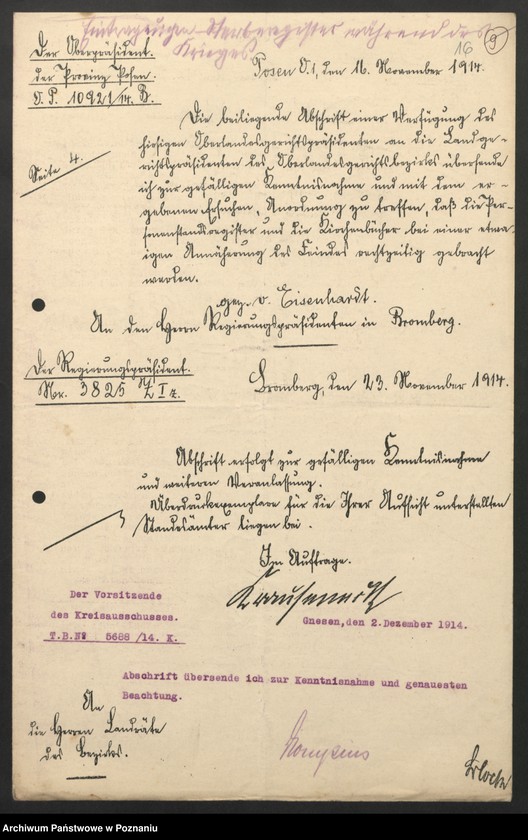 Eintragungen Sterberegister während des
Krieges
16
9
Der Oberpräsident
der Provinz Posen.
O.P. 10921/14. B.
Posen O.1, den 16. November 1914.
Seite 4.
Die beiliegende Abschrift einer Verfügung des
hiesigen Oberlandesgerichtspräsidenten an die Landge-
richtspräsidenten des Oberlandesgerichtsbezirks übersende
ich zur gefälligen Kenntnisnahme und mit dem er-
gebenen Ersuchen, Anordnung zu treffen, daß die Per-
sonenstandsregister und die Kirchenbücher bei einer etwa-
igen Annäherung des Feindes rechtzeitig gebracht
werden.
gez. v. Eisenhardt.
An den Herrn Regierungspräsidenten in Bromberg.
Der Regierungspräsident.
Nr. 3825/14 I z.
Bromberg, den 23. November 1914.
Abschrift erfolgt zur gefälligen Kenntnisnahme
und weiteren Veranlassung.
Überdruckexemplare für die Ihrer Aufsicht unterstellten
Standesämter liegen bei.
Im Auftrage.
Der Vorsitzende
des Kreisausschusses.
T.B.№ 5688 /14. K.
Gnesen,den 2.Dezember 1914.
Abschrift übersende ich zur Kenntnisnahme und genauesten
Beachtung.
An
die Herren Landräte
des Bezirks.
Archiwum Państwowe w Poznaniu